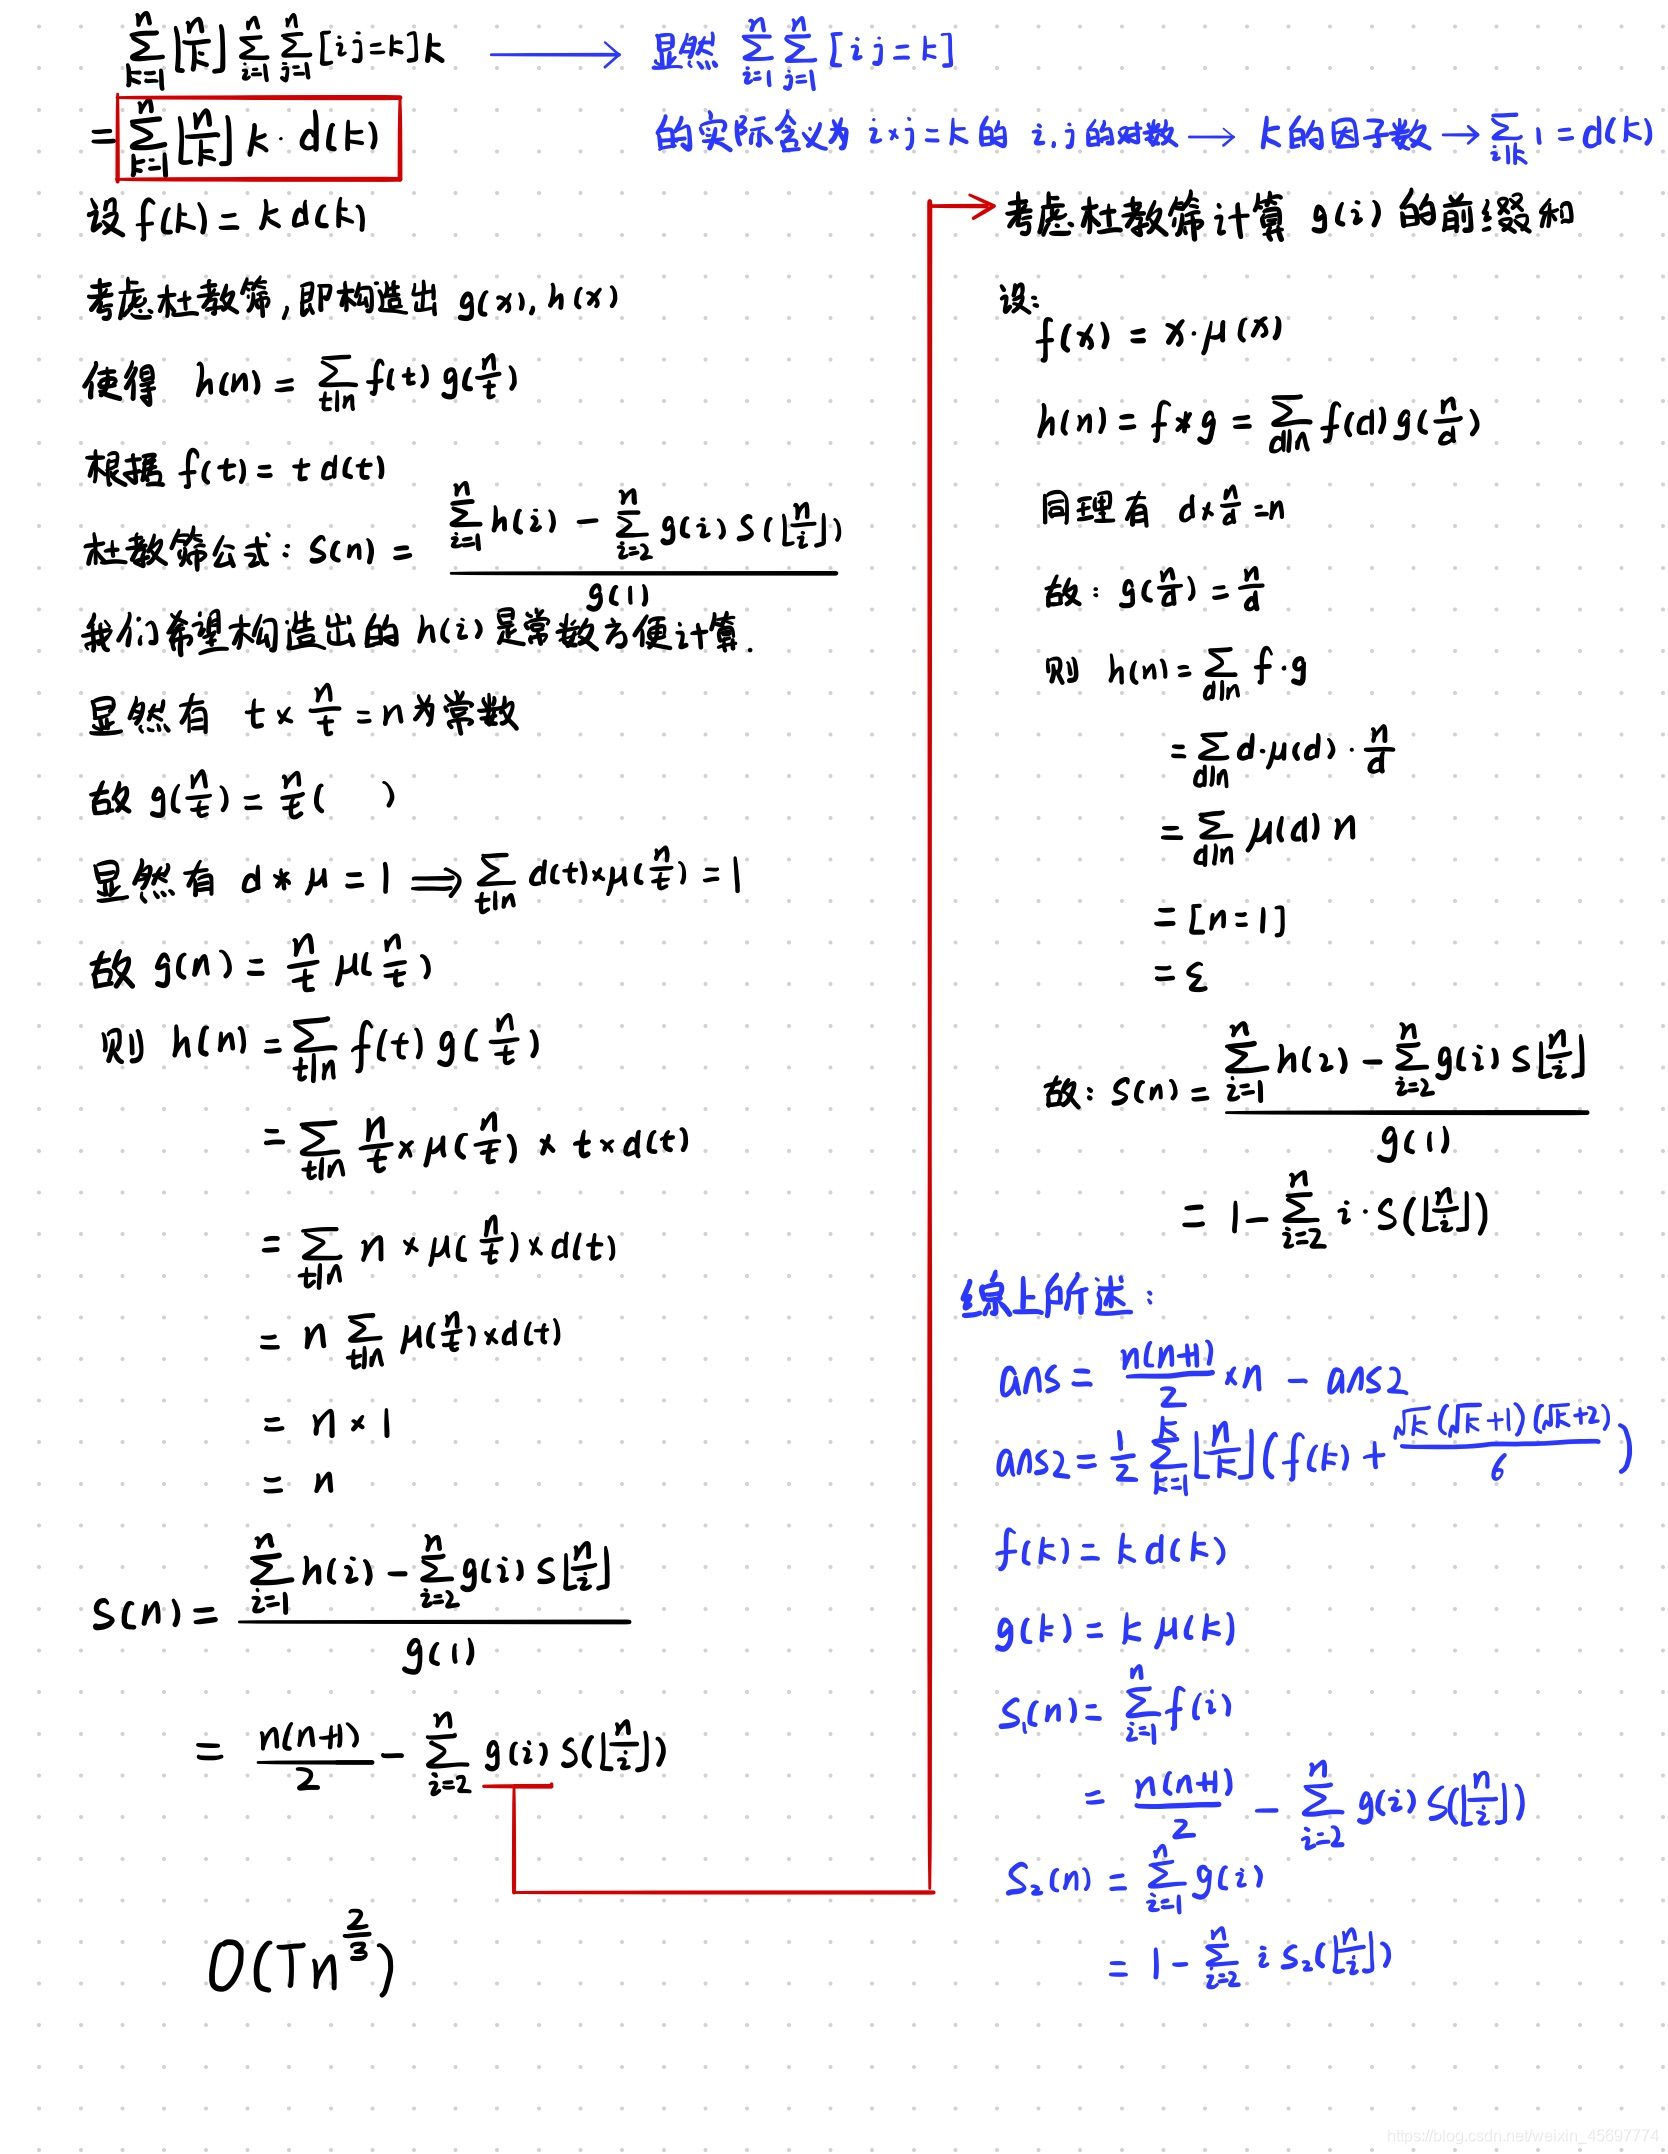 ∑_{k=1}^{n} ⌊n/k⌋ ∑_{i=1}^{n} ∑_{j=1}^{n} [ij=k] k ⟶ 显然 ∑_{i=1}^{n} ∑_{j=1}^{n} [ij=k]
= ∑_{k=1}^{n} ⌊n/k⌋ k · d(k)
的实际含义为 i×j=k 的 i,j 的对数 → k 的因子数 → ∑_{i|k} 1 = d(k)
设 f(k) = k d(k)
考虑杜教筛,即构造出 g(x), h(x)
使得 h(n) = ∑_{t|n} f(t) g(n/t)
根据 f(t) = t d(t)
杜教筛公式: S(n) = (∑_{i=1}^{n} h(i) − ∑_{i=2}^{n} g(i) S(⌊n/i⌋)) / g(1)
我们希望构造出的 h(i) 是常数方便计算.
显然有 t × n/t = n 为常数
故 g(n/t) = n/t ( )
显然有 d * μ = 1 ⟹ ∑_{t|n} d(t)×μ(n/t) = 1
故 g(n) = n/t μ(n/t)
则 h(n) = ∑_{t|n} f(t) g(n/t)
= ∑_{t|n} n/t × μ(n/t) × t × d(t)
= ∑_{t|n} n × μ(n/t) × d(t)
= n ∑_{t|n} μ(n/t) × d(t)
= n × 1
= n
S(n) = (∑_{i=1}^{n} h(i) − ∑_{i=2}^{n} g(i) S⌊n/i⌋) / g(1)
= n(n+1)/2 − ∑_{i=2}^{n} g(i) S(⌊n/i⌋)
O(Tn^{2/3})
考虑杜教筛计算 g(i) 的前缀和
设:
f(x) = x·μ(x)
h(n) = f * g = ∑_{d|n} f(d) g(n/d)
同理有 d × n/d = n
故: g(n/d) = n/d
则 h(n) = ∑_{d|n} f·g
= ∑_{d|n} d·μ(d) · n/d
= ∑_{d|n} μ(d) n
= [n=1]
= ε
故: S(n) = (∑_{i=1}^{n} h(i) − ∑_{i=2}^{n} g(i) S⌊n/i⌋) / g(1)
= 1 − ∑_{i=2}^{n} i · S(⌊n/i⌋)
综上所述:
ans = n(n+1)/2 × n − ans2
ans2 = 1/2 ∑_{k=1}^{k} ⌊n/k⌋ (f(k) + √k(√k+1)(√k+2)/6)
f(k) = k d(k)
g(k) = k μ(k)
S₁(n) = ∑_{i=1}^{n} f(i)
= n(n+1)/2 − ∑_{i=2}^{n} g(i) S(⌊n/i⌋)
S₂(n) = ∑_{i=1}^{n} g(i)
= 1 − ∑_{i=2}^{n} i S₂(⌊n/i⌋)
https://blog.csdn.net/weixin_45697774